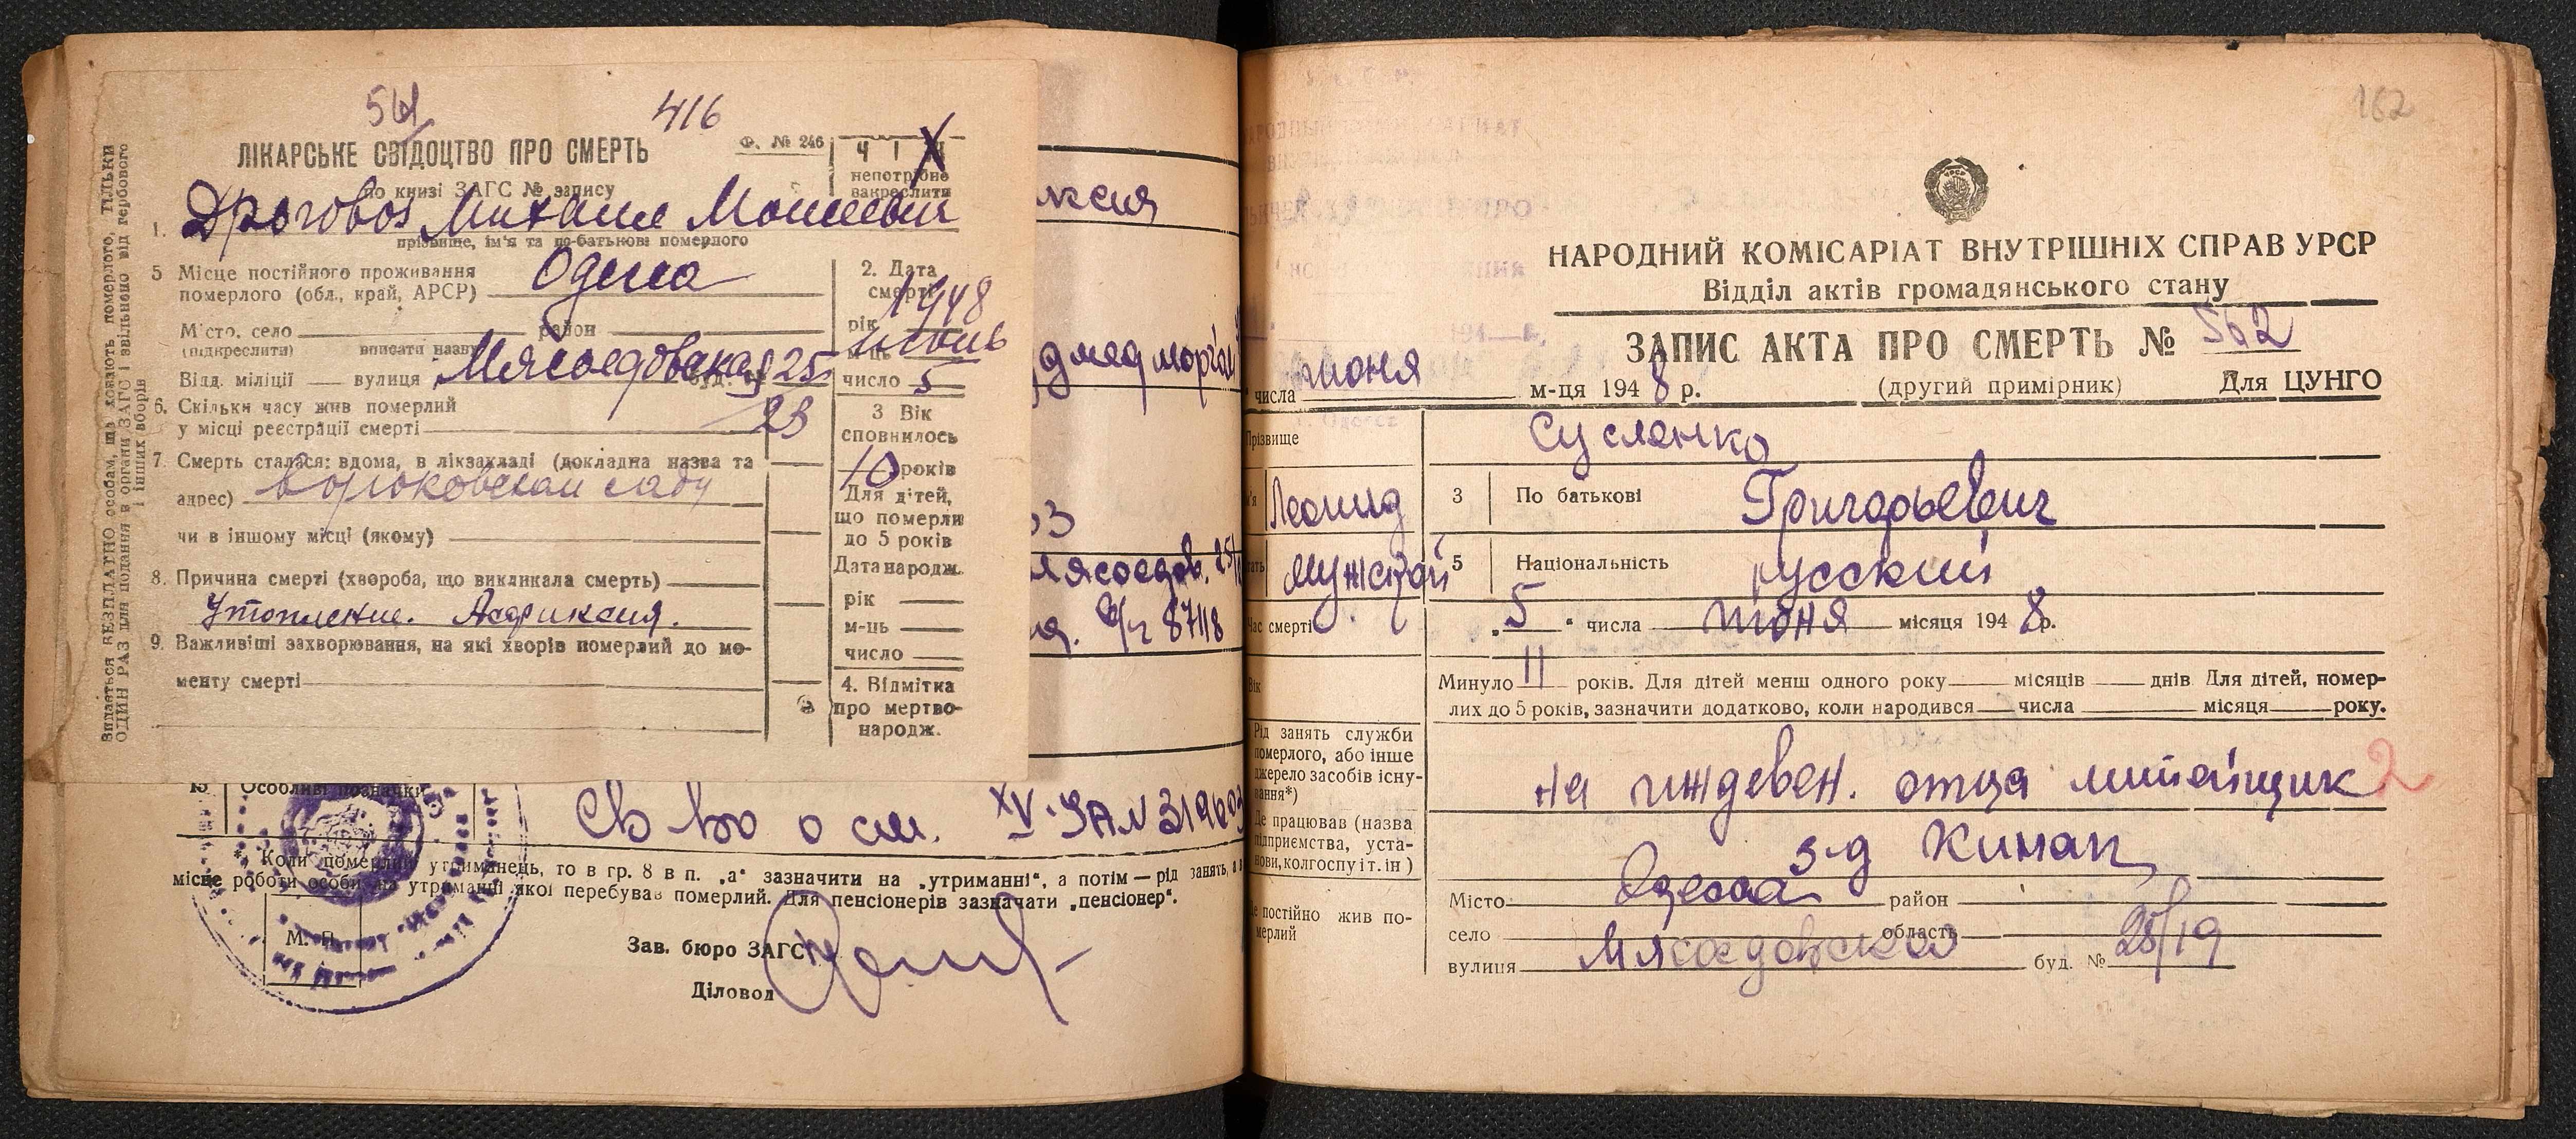 561
416
ЛІКАРСЬКЕ СВІДОЦТВО ПРО СМЕРТЬ
Ф. № 246
по книзі ЗАГС № запису
непотрібне
закреслити
1. Дроговоз Михаил Моисеевич
прізвище, ім'я та по-батькові померлого
5 Місце постійного проживання
померлого (обл., край, АРСР) Одесса
Місто, село район
(підкреслити) вписати назву
Відд. міліції вулиця Мясоедовская буд. № 25
23
6. Скільки часу жив померлий
у місці реєстрації смерті
7. Смерть сталася: вдома, в лікзакладі (докладна назва та
адрес) саду
чи в іншому місці (якому)
8. Причина смерті (хвороба, що викликала смерть)
Утопление. Асфиксия.
9. Важливіші захворювання, на які хворів померлий до мо-
менту смерті
2. Дата
смерті
рік 1948
м-ць июнь
число 5
3 Вік
сповнилось
10 років
Для дітей,
що померли
до 5 років
Дата народж.
рік
м-ць
число
4. Відмітка
про мертво-
народж.
Видається БЕЗПЛАТНО особам, що ховають померлого, тільки
ОДИН РАЗ для подання в органи ЗАГС і звільнено від гербового
і інших зборів
ксия
мясоедов. 25
87118
13 Особливі позначки
Св во о см. XV-ЗА N 319603
* Коли померлий утриманець, то в гр. 8 в п. „а" зазначити на „утриманні", а потім — рід занять, а в
місце роботи особи, на утриманні якої перебував померлий. Для пенсіонерів зазначати „пенсіонер".
М. П.
Зав. бюро ЗАГС
Діловод
162
НАРОДНИЙ КОМІСАРІАТ ВНУТРІШНІХ СПРАВ УРСР
Відділ актів громадянського стану
ЗАПИС АКТА ПРО СМЕРТЬ № 562
числа июня м-ця 1948 р. (другий примірник) Для ЦУНГО
Прізвище Сусленко
Леонид 3 По батькові Григорьевич
мужской 5 Національність русский
Час смерті „5" числа июня місяця 1948 р.
Вік Минуло 11 років. Для дітей менш одного року місяців днів Для дітей, помер-
лих до 5 років, зазначити додатково, коли народився числа місяця року.
Рід занять служби
померлого, або інше
джерело засобів існу-
вання*)
на иждевен. отца литейщик 2
Де працював (назва
підприємства, уста-
нови, колгоспу і т. ін.)
з-д Кинап
Де постійно жив по-
мерлий
Місто Одесса район
село область
вулиця Мясоедовская буд. № 25/19